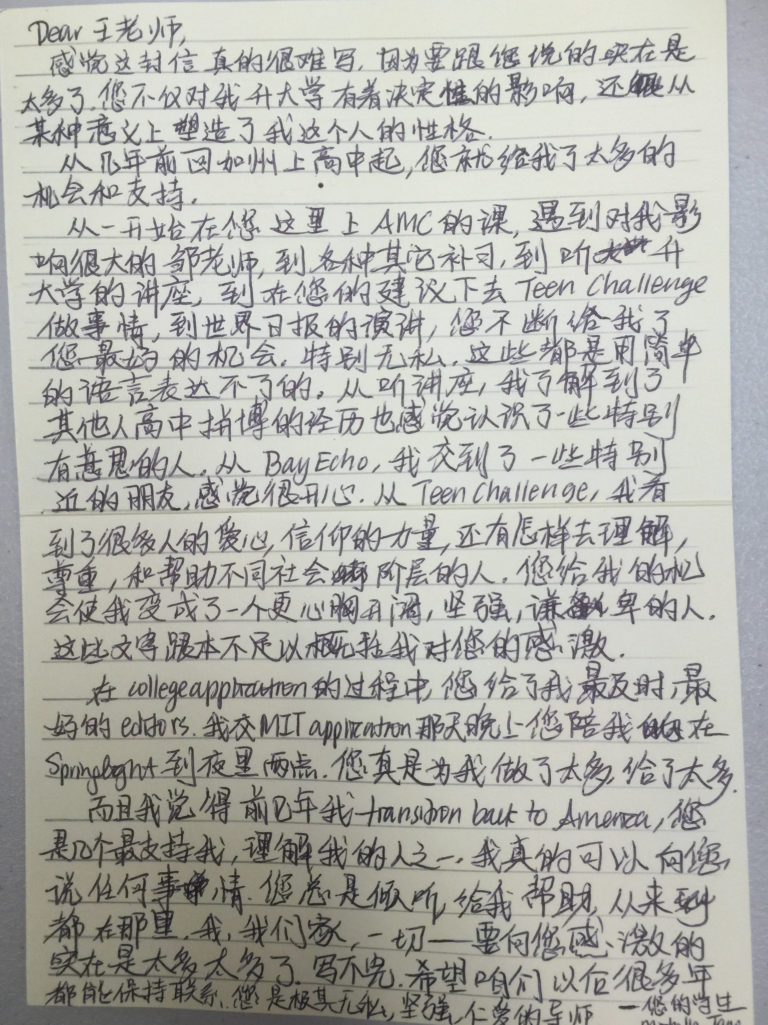 Dear 王老师,
感觉这封信真的很难写, 因为要跟您说的实在是
太多了. 您不仅对我升大学有着决定性的影响, 还从
某种意义上塑造了我这个人的性格.
从几年前回加州上高中起, 您就给我了太多的
机会和支持.
从一开始在您这里上AMC的课, 遇到对我影
响很大的邹老师, 到各种其它补习, 到听升
大学的讲座, 到在您的建议下去Teen Challenge
做事情, 到世界日报的演讲, 您不断给我了
您最好的机会. 特别无私. 这些都是用简单
的语言表达不了的. 从听讲座, 我了解到了
其他人高中拼搏的经历也感觉认识了一些特别
有意思的人. 从BayEcho, 我交到了一些特别
近的朋友, 感觉很开心. 从Teen Challenge, 我看
到了很多人的爱心, 信仰的力量, 还有怎样去理解,
尊重, 和帮助不同社会阶层的人. 您给我的机
会使我变成了一个更心胸开阔, 坚强, 谦卑的人.
这些文字跟本不足以概括我对您的感激.
在college application的过程中, 您给了我最及时, 最
好的editors. 我交MIT application那天晚上您陪我在
Springlight到夜里两点. 您真是为我做了太多, 给了太多.
而且我觉得前几年我transition back to America, 您
是几个最支持我, 理解我的人之一. 我真的可以向您
说任何事情. 您总是倾听, 给我帮助, 从来到
都在那里. 我, 我们家, 一切——要向您感激的
实在是太多太多了. 写不完. 希望咱们以后很多年
都能保持联系. 您是极其无私, 坚强, 仁爱的导师 —您的学生